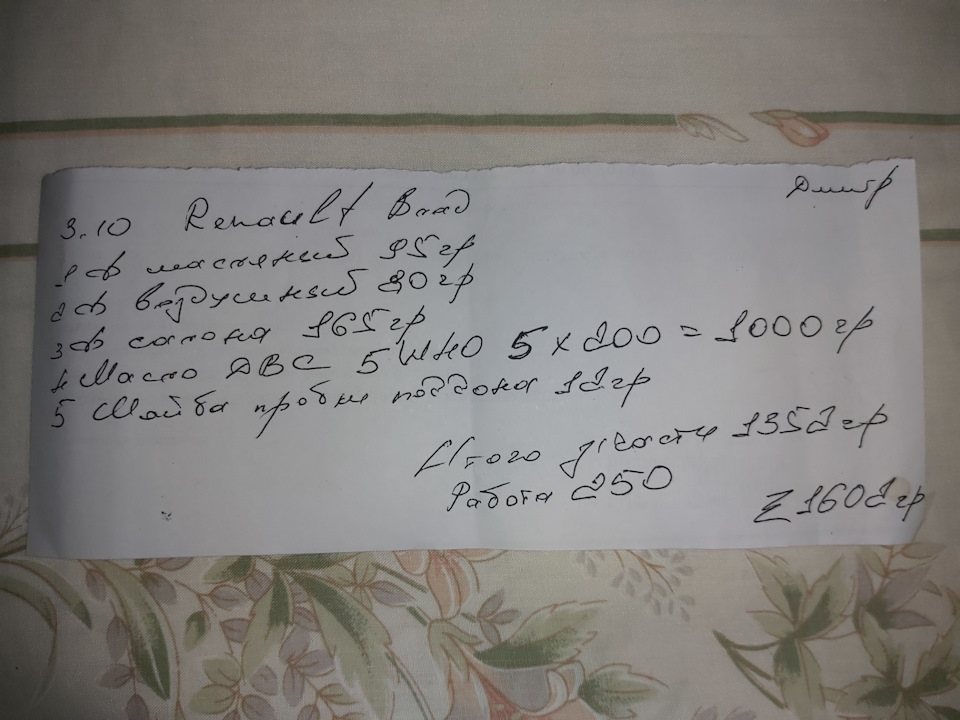 Дмитр
3.10 Renault Влад
1 ф масляный 95гр
2 ф воздушный 80гр
3 ф салона 165гр
4 Масло ДВС 5W40 5 x 200 = 1000гр
5 Шайба пробки поддона 12гр
Итого з/части 1352гр
Работа 250
Σ 1602гр